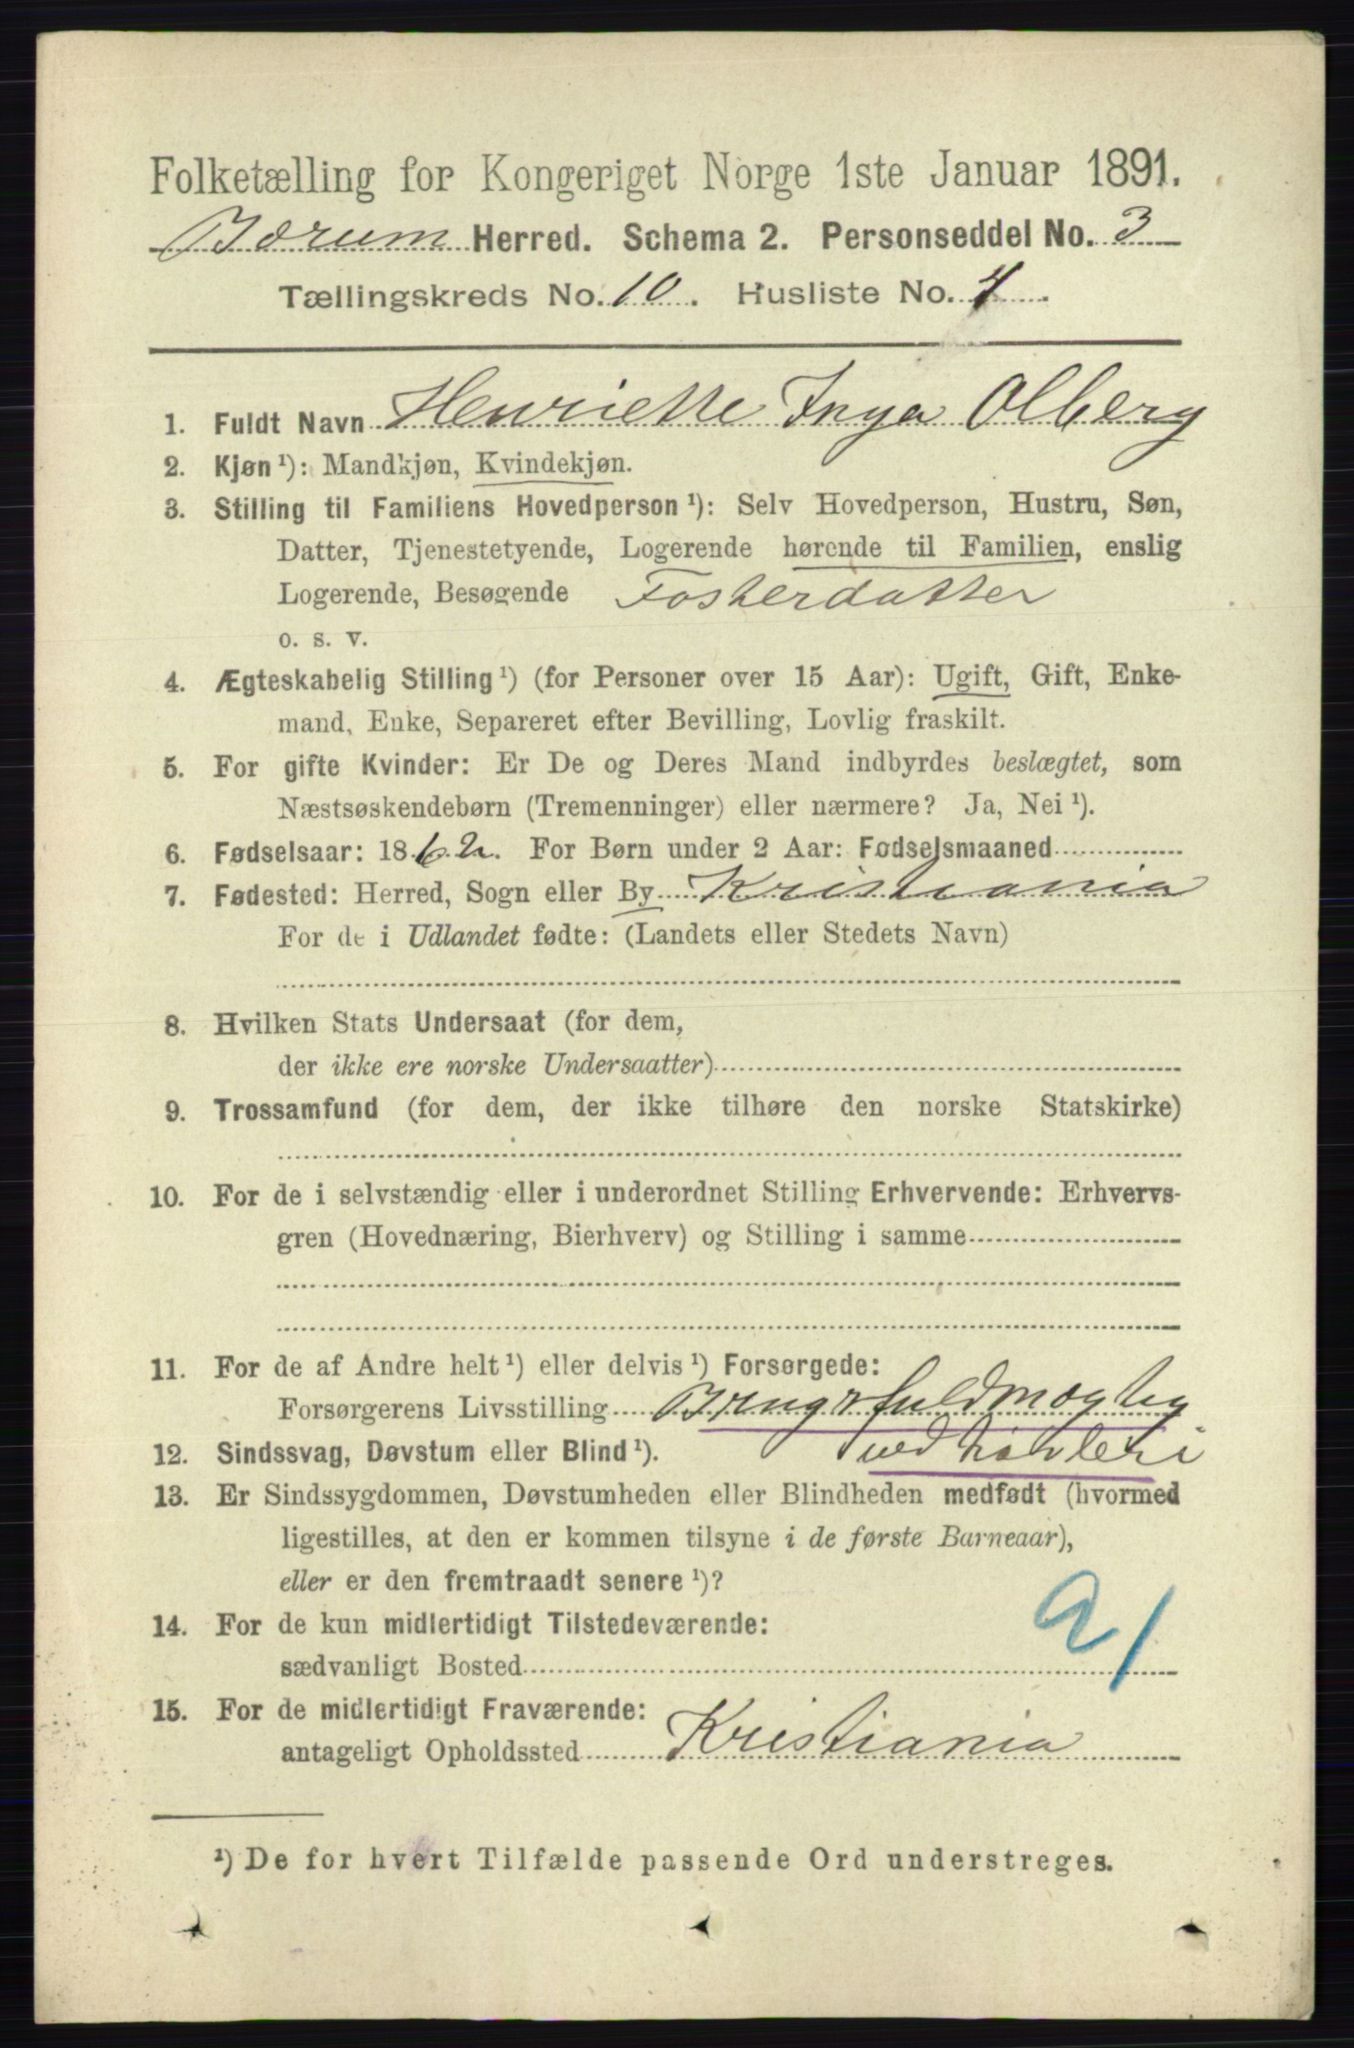 Folketælling for Kongeriget Norge 1ste Januar 1891.
Bærum Herred. Schema 2. Personseddel No. 3
Tællingskreds No. 10. Husliste No. 4.
1. Fuldt Navn Henriette Inga Olberg
2. Kjøn ¹): Mandkjøn, Kvindekjøn.
3. Stilling til Familiens Hovedperson ¹): Selv Hovedperson, Hustru, Søn,
Datter, Tjenestetyende, Logerende hørende til Familien, enslig
Logerende, Besøgende Fosterdatter
o. s. v.
4. Ægteskabelig Stilling ¹) (for Personer over 15 Aar): Ugift, Gift, Enke-
mand, Enke, Separeret efter Bevilling, Lovlig fraskilt.
5. For gifte Kvinder: Er De og Deres Mand indbyrdes beslægtet, som
Næstsøskendebørn (Tremenninger) eller nærmere? Ja, Nei ¹).
6. Fødselsaar: 1862. For Børn under 2 Aar: Fødselsmaaned
7. Fødested: Herred, Sogn eller By Kristiania
For de i Udlandet fødte: (Landets eller Stedets Navn)
8. Hvilken Stats Undersaat (for dem,
der ikke ere norske Undersaatter)
9. Trossamfund (for dem, der ikke tilhøre den norske Statskirke)
10. For de i selvstændig eller i underordnet Stilling Erhvervende: Erhvervs-
gren (Hovednæring, Bierhverv) og Stilling i samme
11. For de af Andre helt ¹) eller delvis ¹) Forsørgede:
Forsørgerens Livsstilling Brugsfuldmægtig
12. Sindssvag, Døvstum eller Blind ¹). ved Høvleri
13. Er Sindssygdommen, Døvstumheden eller Blindheden medfødt (hvormed
ligestilles, at den er kommen tilsyne i de første Barneaar),
eller er den fremtraadt senere ¹)?
14. For de kun midlertidigt Tilstedeværende:
sædvanligt Bosted
15. For de midlertidigt Fraværende:
antageligt Opholdssted Kristiania
¹) De for hvert Tilfælde passende Ord understreges.